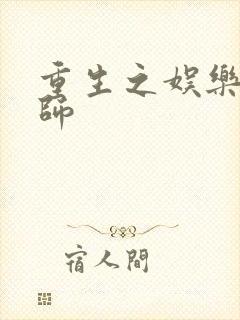 重生之娛樂
師
宿人間